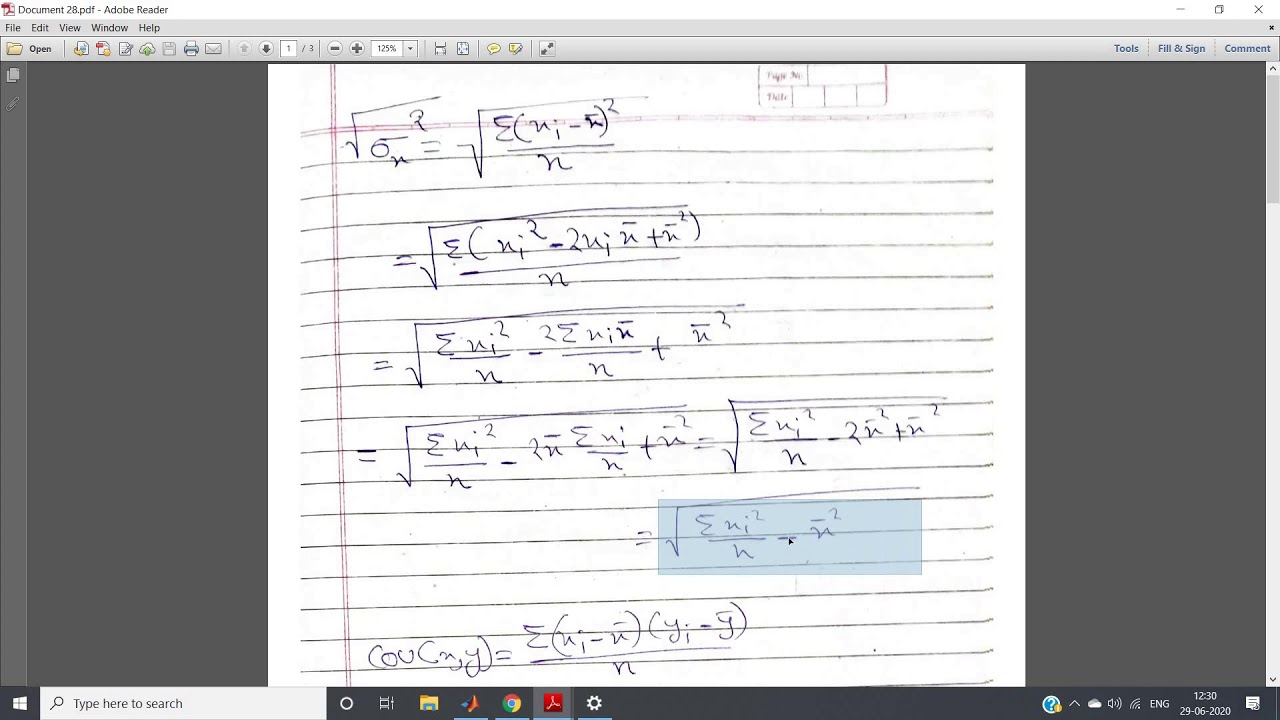 Document 28.pdf - Adobe Reader
File Edit View Window Help
Open 1 / 3 125% Tools Fill & Sign Comment
Page No.
Date
√σₓ² = √(Σ(xᵢ - x̄)²/n)
= √(Σ(xᵢ² - 2xᵢx̄ + x̄²)/n)
= √(Σxᵢ²/n - 2Σxᵢx̄/n + x̄²)
= √(Σxᵢ²/n - 2x̄ Σxᵢ/n + x̄²) = √(Σxᵢ²/n - 2x̄² + x̄²)
= √(Σxᵢ²/n - x̄²)
Cov(x,y) = Σ(xᵢ - x̄)(yᵢ - ȳ)/n
Type here to search
ENG
12:30
29-06-2020